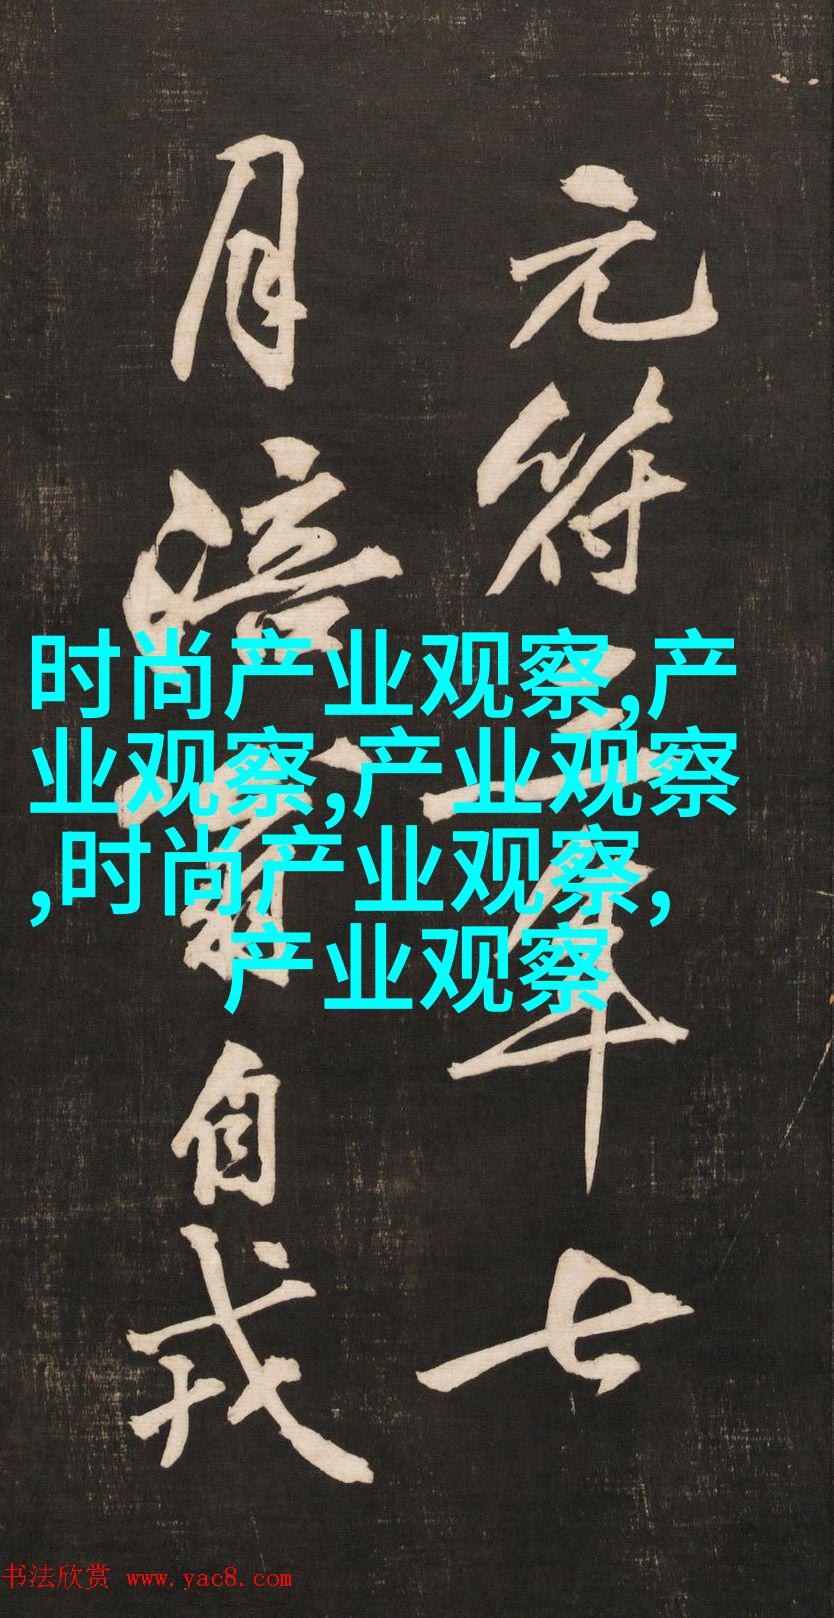 元符三年七
月涪翁自戎
时尚产业观察,产
业观察,产业观察
,时尚产业观察,
产业观察
书法欣赏 www.yac8.com